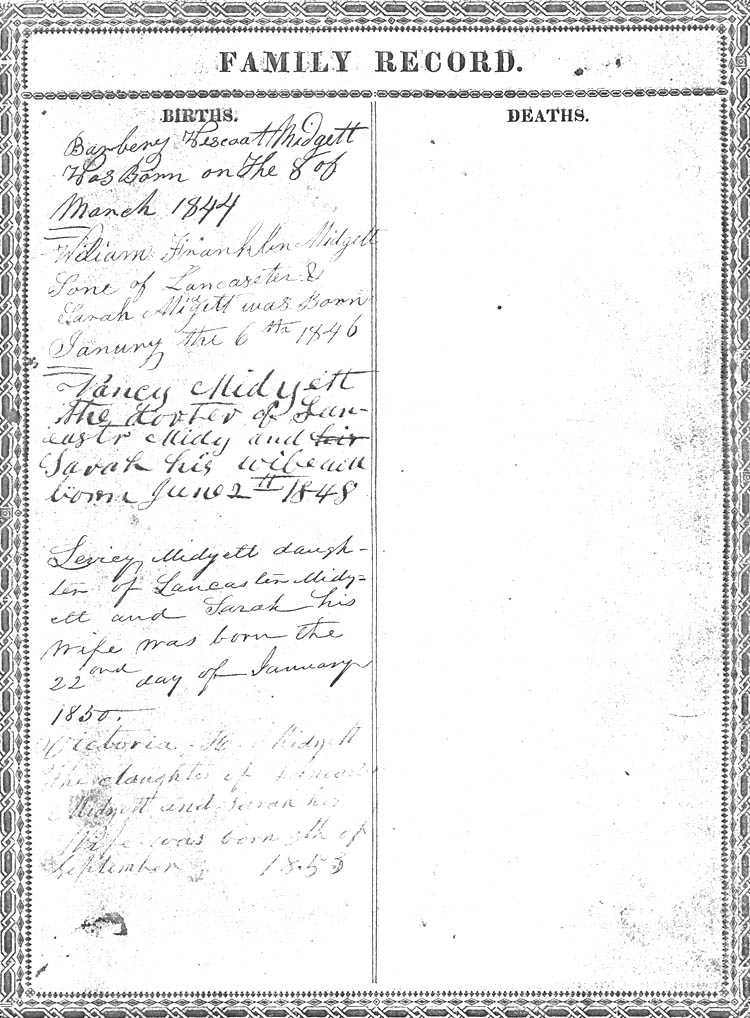 FAMILY RECORD.
BIRTHS.
Barbery Wescoat Midgett
Was Born on The 8 of
March 1844
William Franklin Midgett
Sone of Lancaster &
Sarah Midgett was Born
Janury the 6 th 1846
Nancy Midyett
the dorter of Lan-
castr Midy and his
Sarah his
born June 2 1848
Levicy Midyett daugh-
ter of Lancaster Midy-
ett and Sarah his
wife was born the
22 ond day of January
1850.
Victoria Midyett
the daughter of
Midyett and Sarah his
Wife was born 9th of
September 1853
DEATHS.